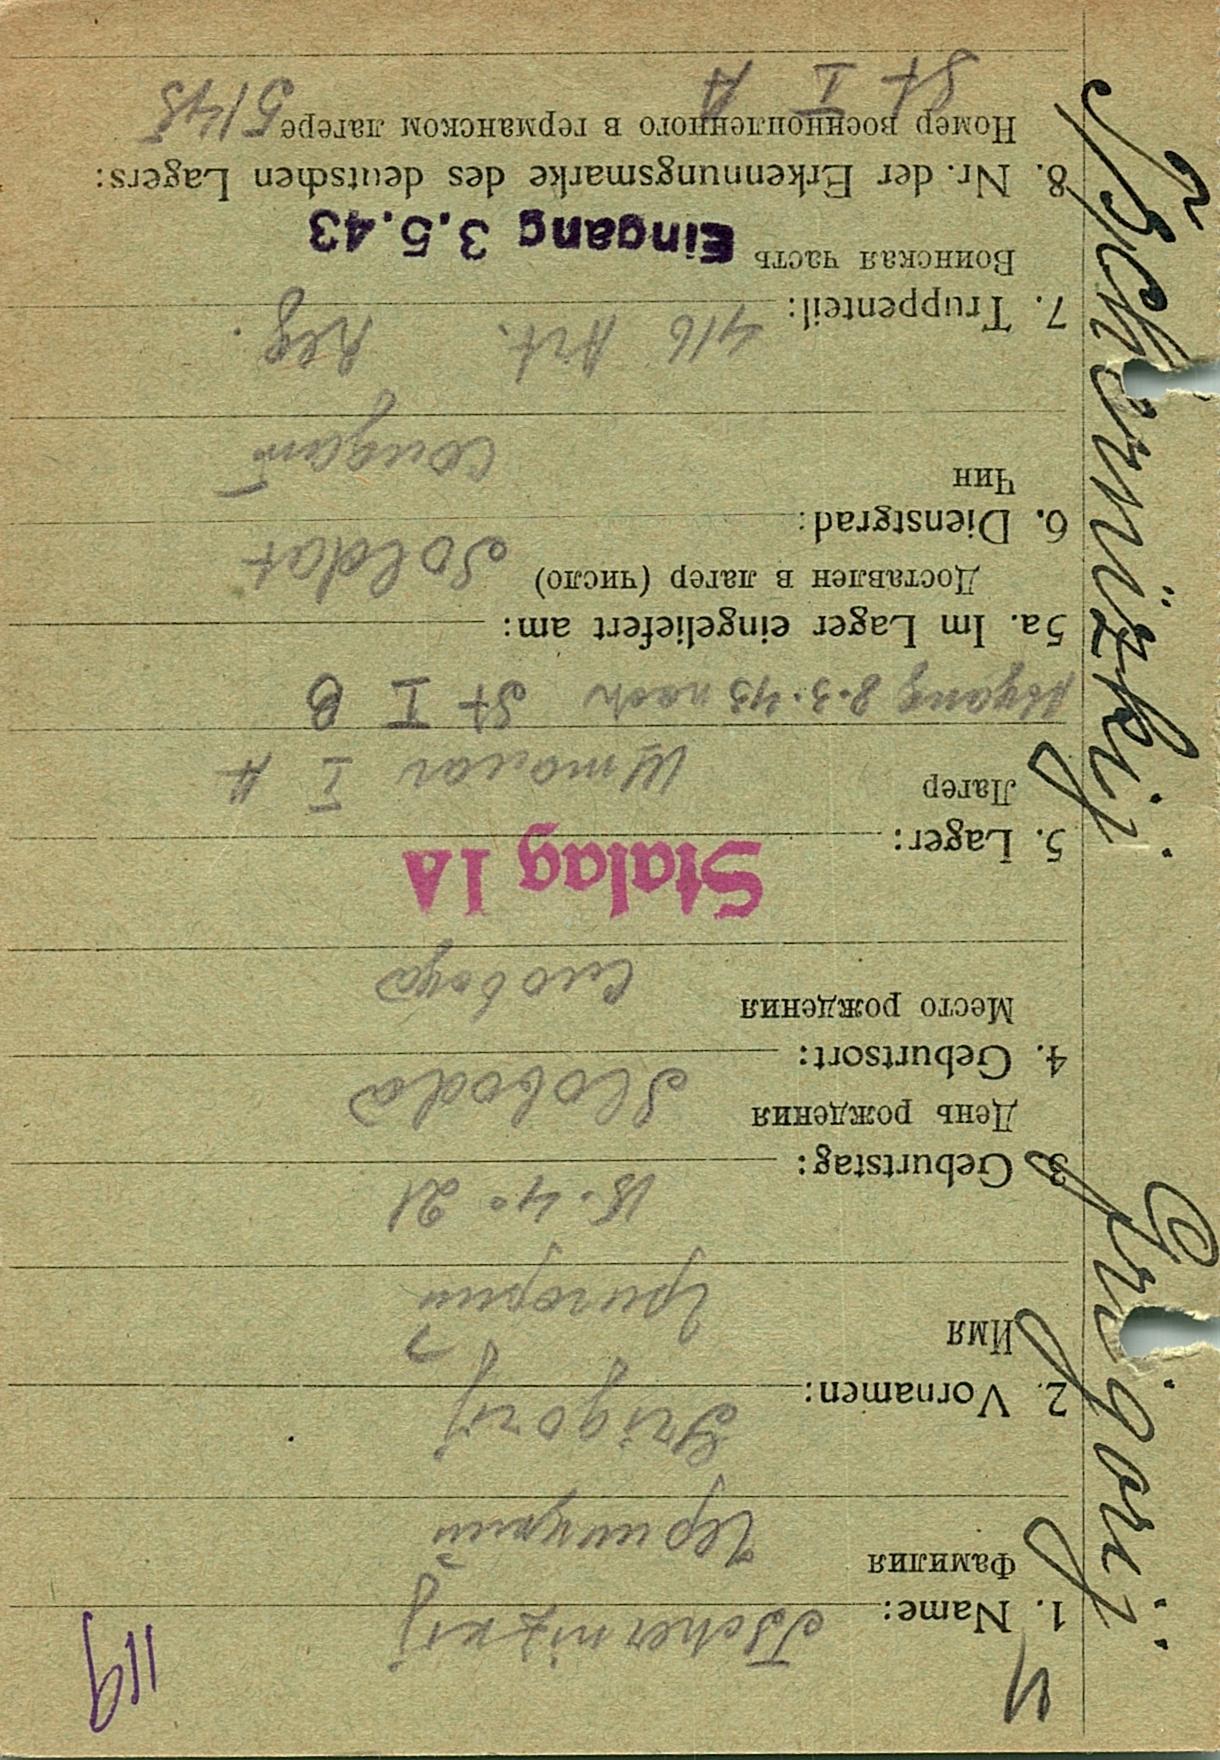 Tschernizkij Grigorij
119
1. Name: Tschernizkij
Фамилия
2. Vornamen: Grigorij
Имя Григорий
3. Geburtstag: 15.4.21
День рождения
4. Geburtsort: Sloboda
Место рождения Слобода
Stalag IA
5. Lager:
Лагер Шталаг I A
Abgang 8.3.43 nach St I B
5a. Im Lager eingeliefert am:
Доставлен в лагер (число)
6. Dienstgrad: Soldat
Чин Солдат
7. Truppenteil: 416 Art. Reg.
Воинская часть Eingang 3.5.43
8. Nr. der Erkennungsmarke des deutschen Lagers:
Номер военнопленного в германском лагере 5145
St I A